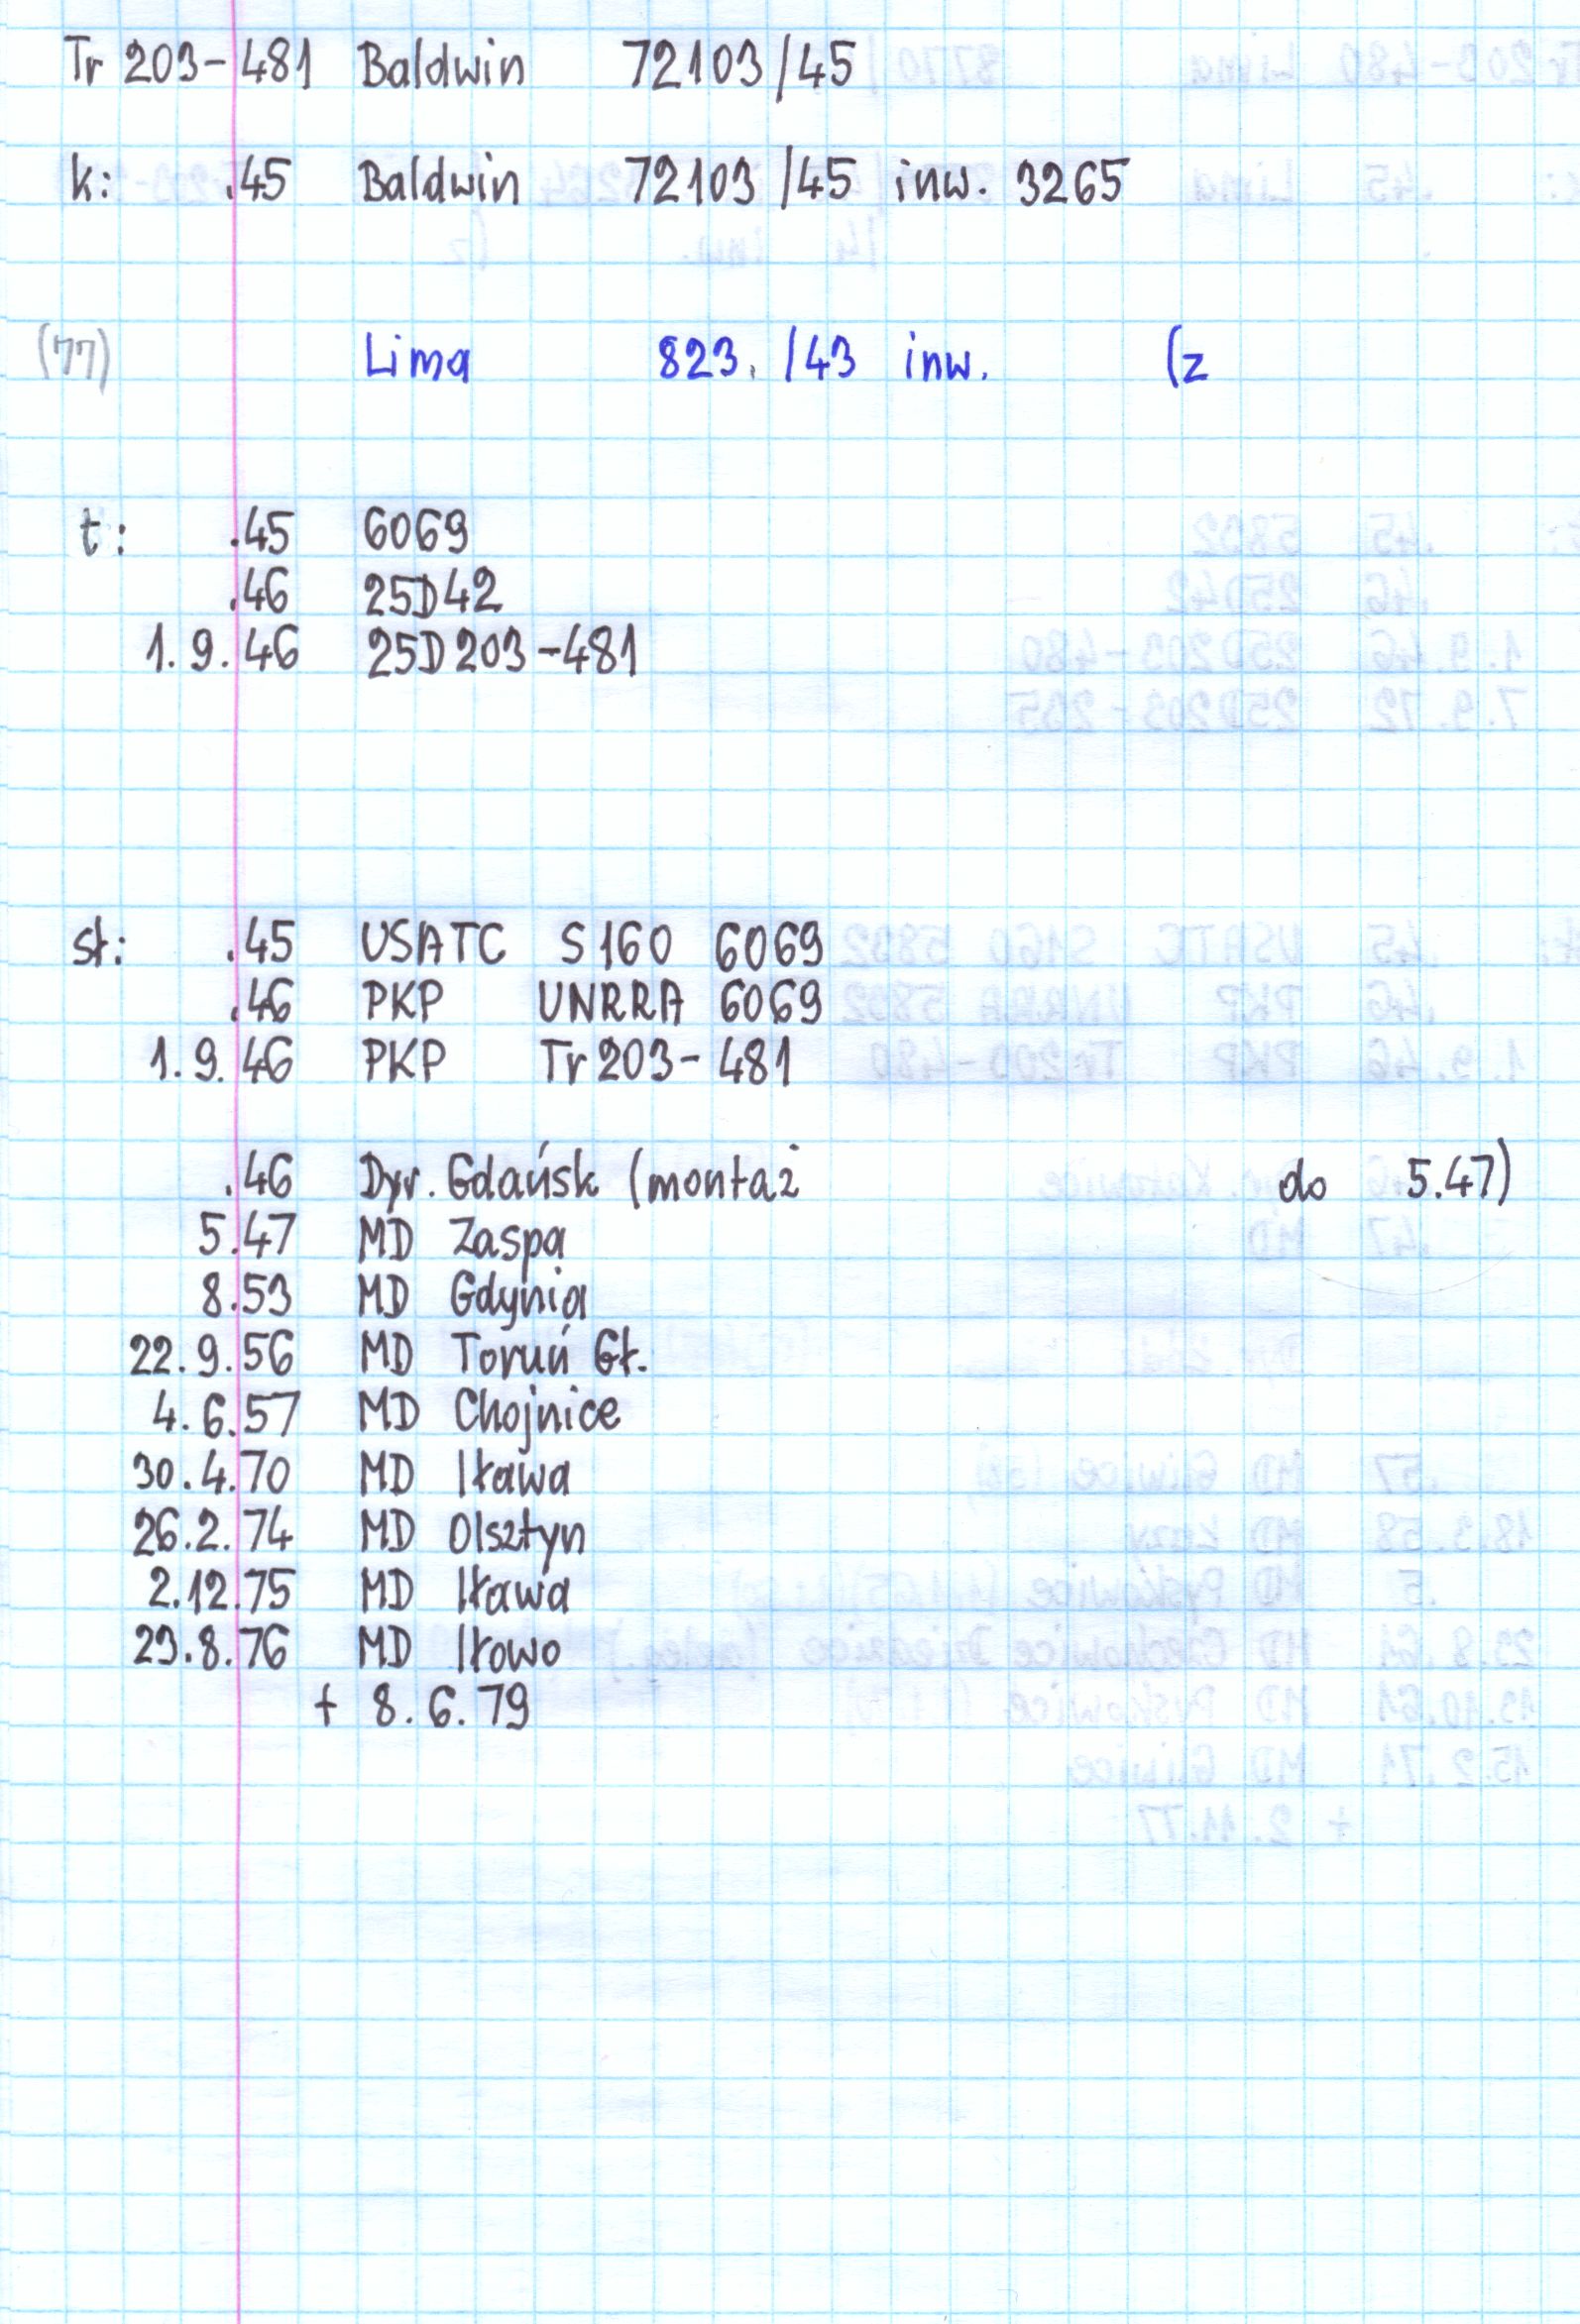 Tr 203-481 Baldwin 72103/45
k: .45 Baldwin 72103/45 inw. 3265
(77) Lima 823. /43 inw. (z
t: .45 6069
.46 25D42
1.9.46 25D203-481
st: .45 USATC S160 6069
.46 PKP UNRRA 6069
1.9.46 PKP Tr203-481
.46 Dyr. Gdańsk (montaż do 5.47)
5.47 MD Zaspa
8.53 MD Gdynia
22.9.56 MD Toruń Gł.
4.6.57 MD Chojnice
30.4.70 MD Iława
26.2.74 MD Olsztyn
2.12.75 MD Iława
29.8.76 MD Iłowo
+ 8.6.79